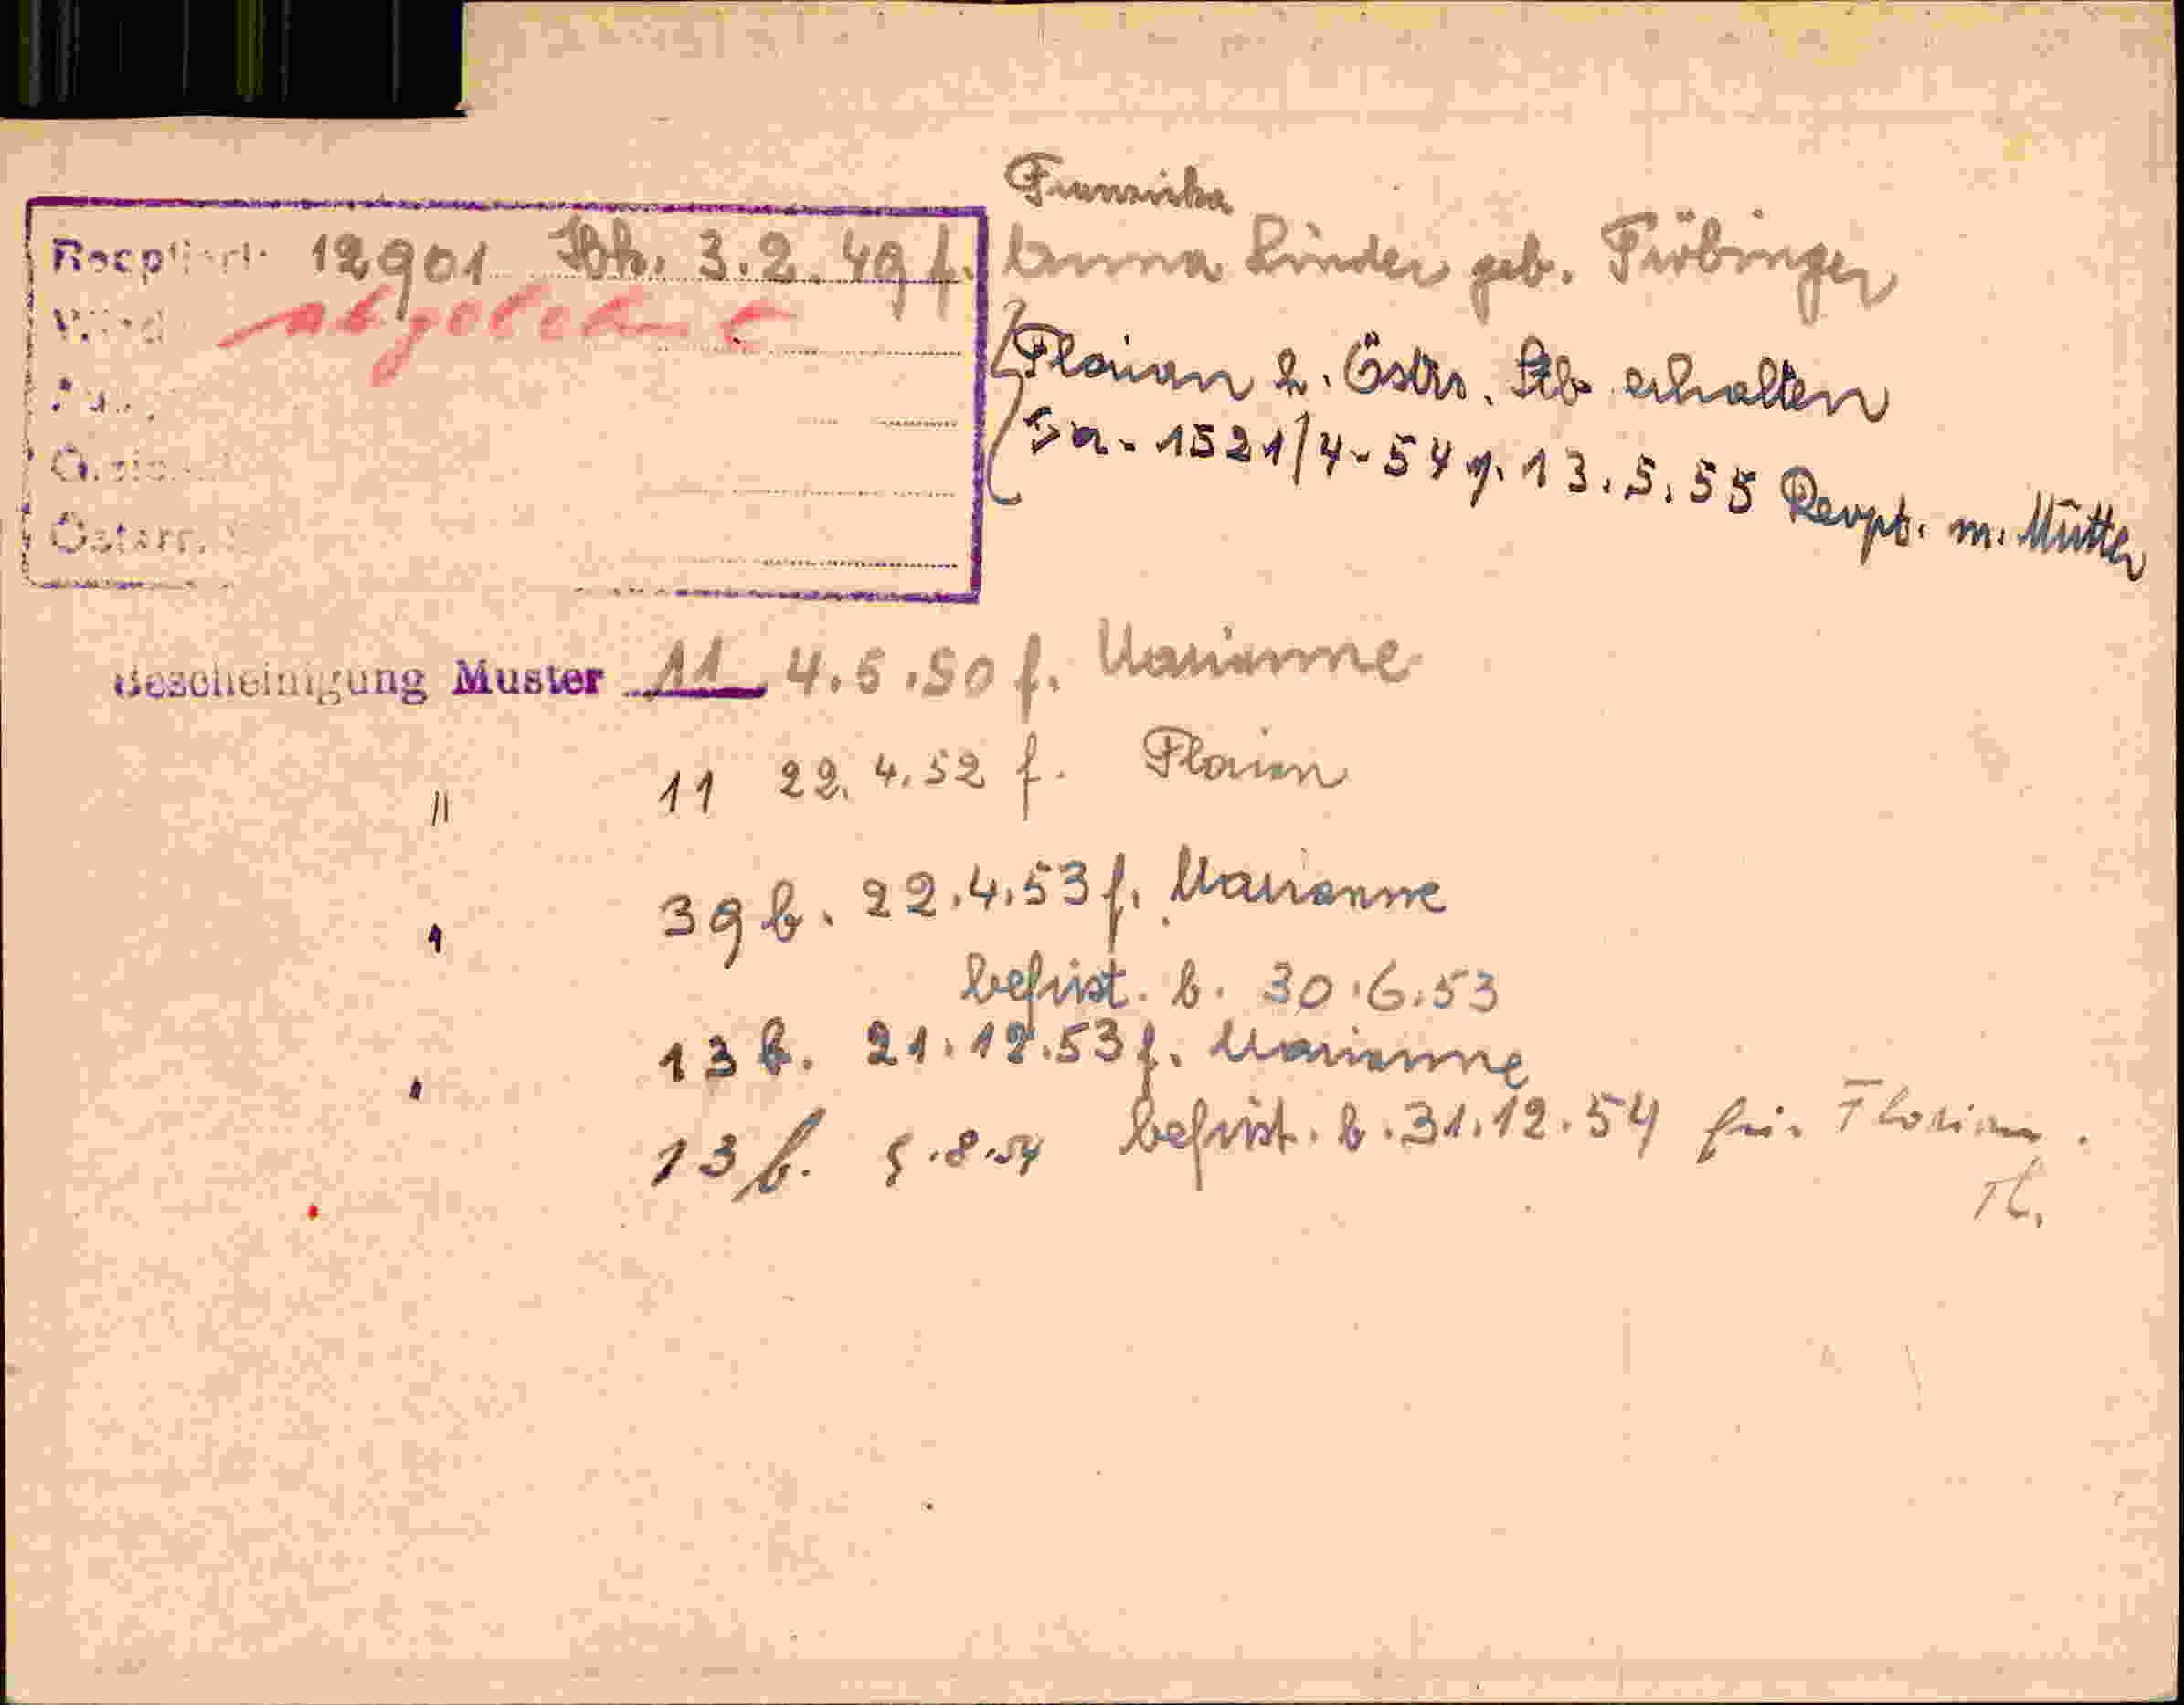 Franziska
12901 Bh. 3.2.49 f. Anna Linder geb. Fröbinger
abgelehnt
Florian 2. Östr. Stb erhalten
Öster.
Sa. 1521/4-54 v. 13.5.55 Reopt. m. Mutter
Bescheinigung Muster 11 4.5.50 f. Marianne
" 11 22.4.52 f. Florian
39 b. 22.4.53 f. Marianne
befrist. b. 30.6.53
13 b. 21.12.53 f. Marianne
13 b. 5.8.54 befrist. b. 31.12.54 für Florian.